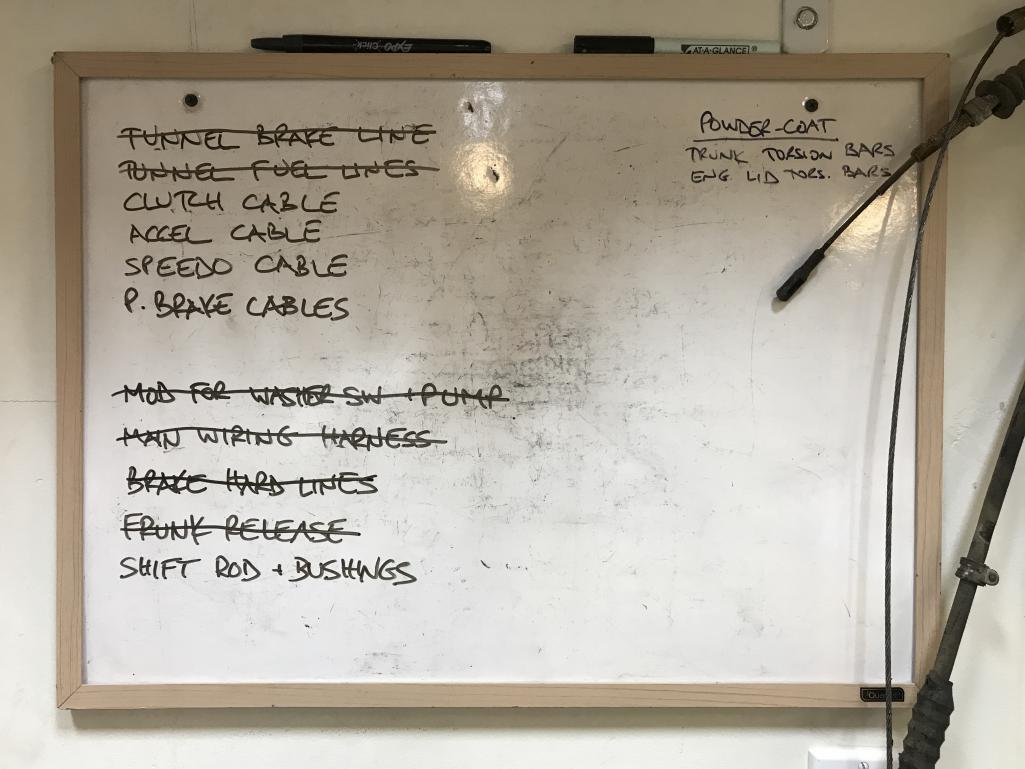 EXPO CLICK
AT-A-GLANCE®
TUNNEL BRAKE LINE
TUNNEL FUEL LINES
CLUTCH CABLE
ACCEL CABLE
SPEEDO CABLE
P. BRAKE CABLES
MOD FOR WASHER SW + PUMP
MAIN WIRING HARNESS
BRAKE HARD LINES
FRUNK RELEASE
SHIFT ROD + BUSHINGS
POWDER-COAT
TRUNK TORSION BARS
ENG. LID TORS. BARS